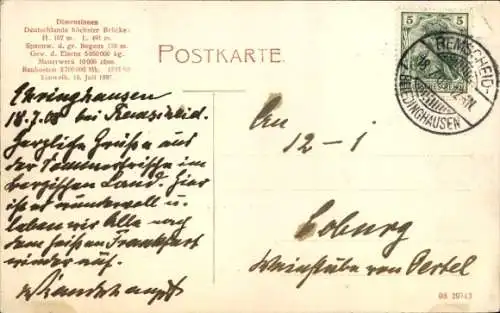 Dimensionen
Deutschlands höchster Brücke:
H. 107 m. L. 491 m.
Spannw. d. gr. Bogens 170 m.
Gew. d. Eisens 5000000 kg.
Mauerwerk 10000 cbm.
Baukosten 2700000 Mk.
Einweih. 15. Juli 1897.
POSTKARTE.
5 5
REMSCHEID-
BLIEDINGHAUSEN
Ehringhausen
18.7.08 bei Remscheid.
Herzliche Grüße aus
der Sommerfrische im
bergischen Land. Hier
ist es wundervoll u.
leben wir Alle nach
dem heißen Frankfurt
wieder auf.
An
12-1
Coburg
Weinstube von Oertel